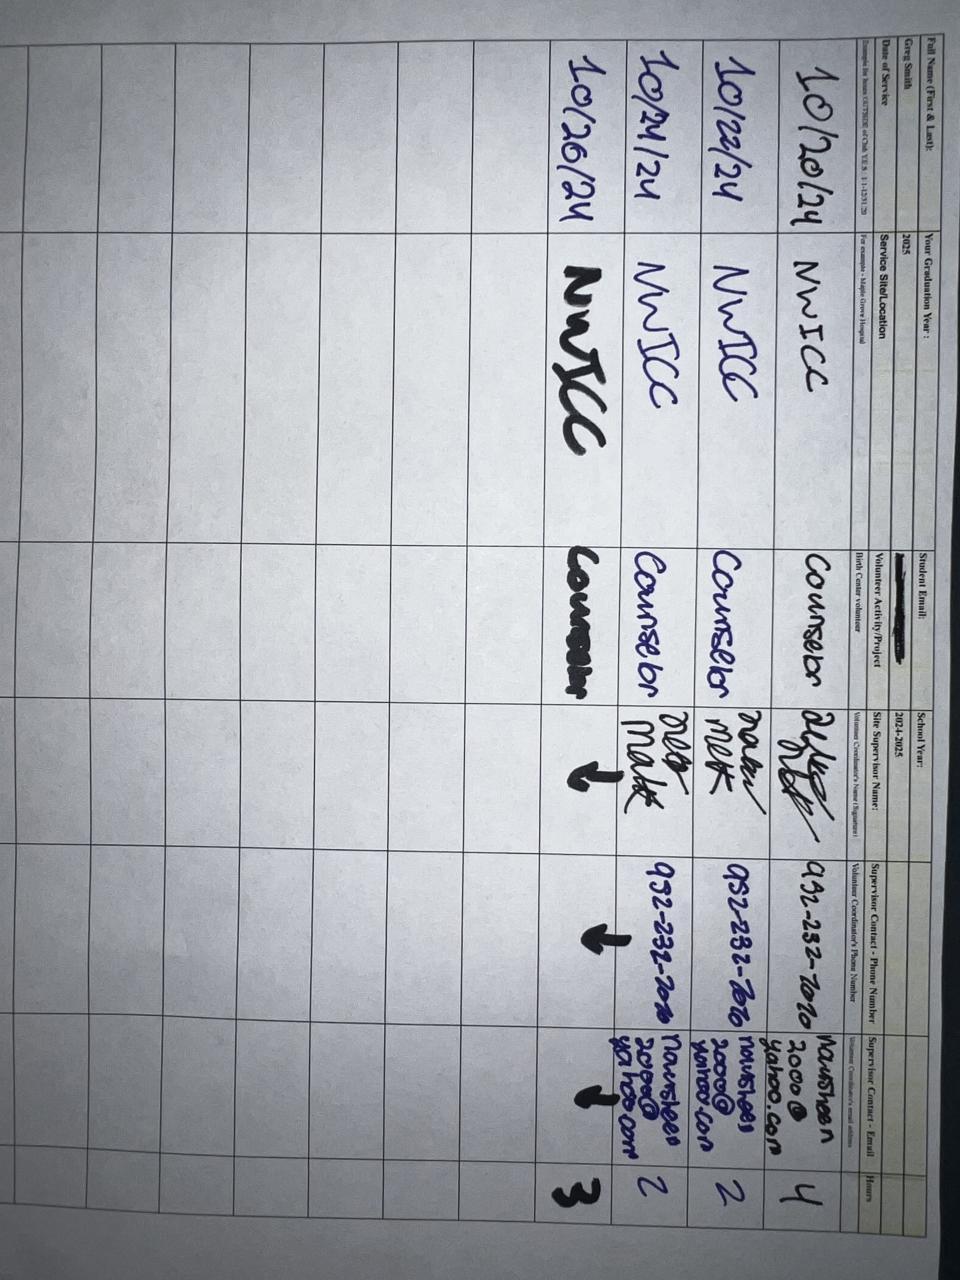 Full Name (First & Last):
Your Graduation Year :
Student Email:
School Year:
Greg Smith
2025
2024-2025
Date of Service
Service Site/Location
Volunteer Activity/Project
Site Supervisor Name:
Supervisor Contact - Phone Number
Supervisor Contact - Email
Hours
For example - Maple Grove Hospital
Birth Center volunteer
Volunteer Coordinator's Name (Signature)
Volunteer Coordinator's Phone Number
Volunteer Coordinator's email address
10/20/24
NWICC
Counselor
932-232-7020
nausheen
2000@
yahoo.com
4
10/22/24
NWICC
Counselor
nausheen
2000@
yahoo.com
2
10/24/24
NWICC
Counselor
Malik
nausheen
2000@
yahoo.com
2
10/26/24
NWICC
Counselor
3